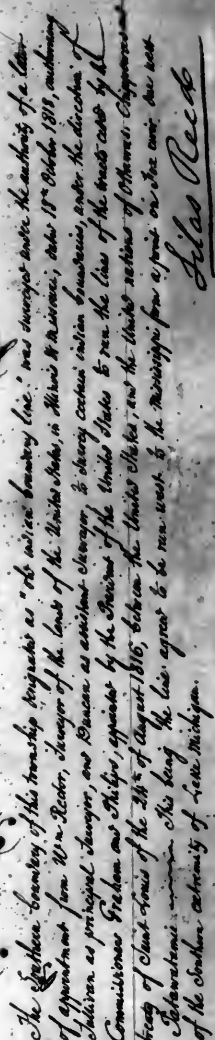 The Southern boundary of this township designated as "the indian boundary line" was surveyed under the authority of a letter
of appointment from Wm Rector, Surveyor of the lands of the United States, in Illinois & Missouri, dated 18th October 1818, authorizing
Sullivan as principal Surveyor, and Duncan as assistant Surveyor to survey certain indian boundaries, under the direction of
Commissioners Graham and Philips, appointed by the President of the United States to run the lines of the tracts ceded by the
treaty of Saint Louis of the 24th of August 1816, between the United States, and the United nations of Ottawas Chippewas and
Potawatamies This being the line agreed to be run west to the Mississippi from a point on due course west
of the Southern extremity of Lake Michigan.
Silas Reed